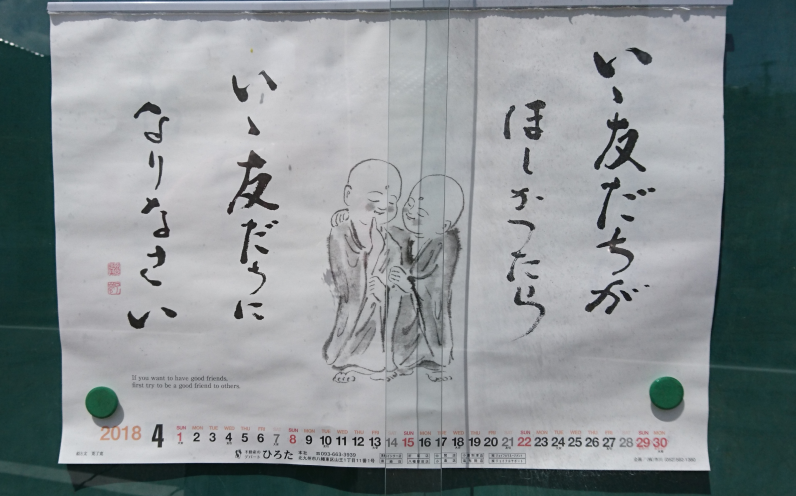 いゝ友だちが
ほしかったら
いゝ友だちに
なりなさい
If you want to have good friends,
first try to be a good friend to others.
2018 4
SUN MON TUE WED THU FRI SAT SUN MON TUE WED THU FRI SAT SUN MON TUE WED THU FRI SAT SUN MON TUE WED THU FRI SAT SUN MON
1 2 3 4 5 6 7 8 9 10 11 12 13 14 15 16 17 18 19 20 21 22 23 24 25 26 27 28 29 30
ひろた 本社